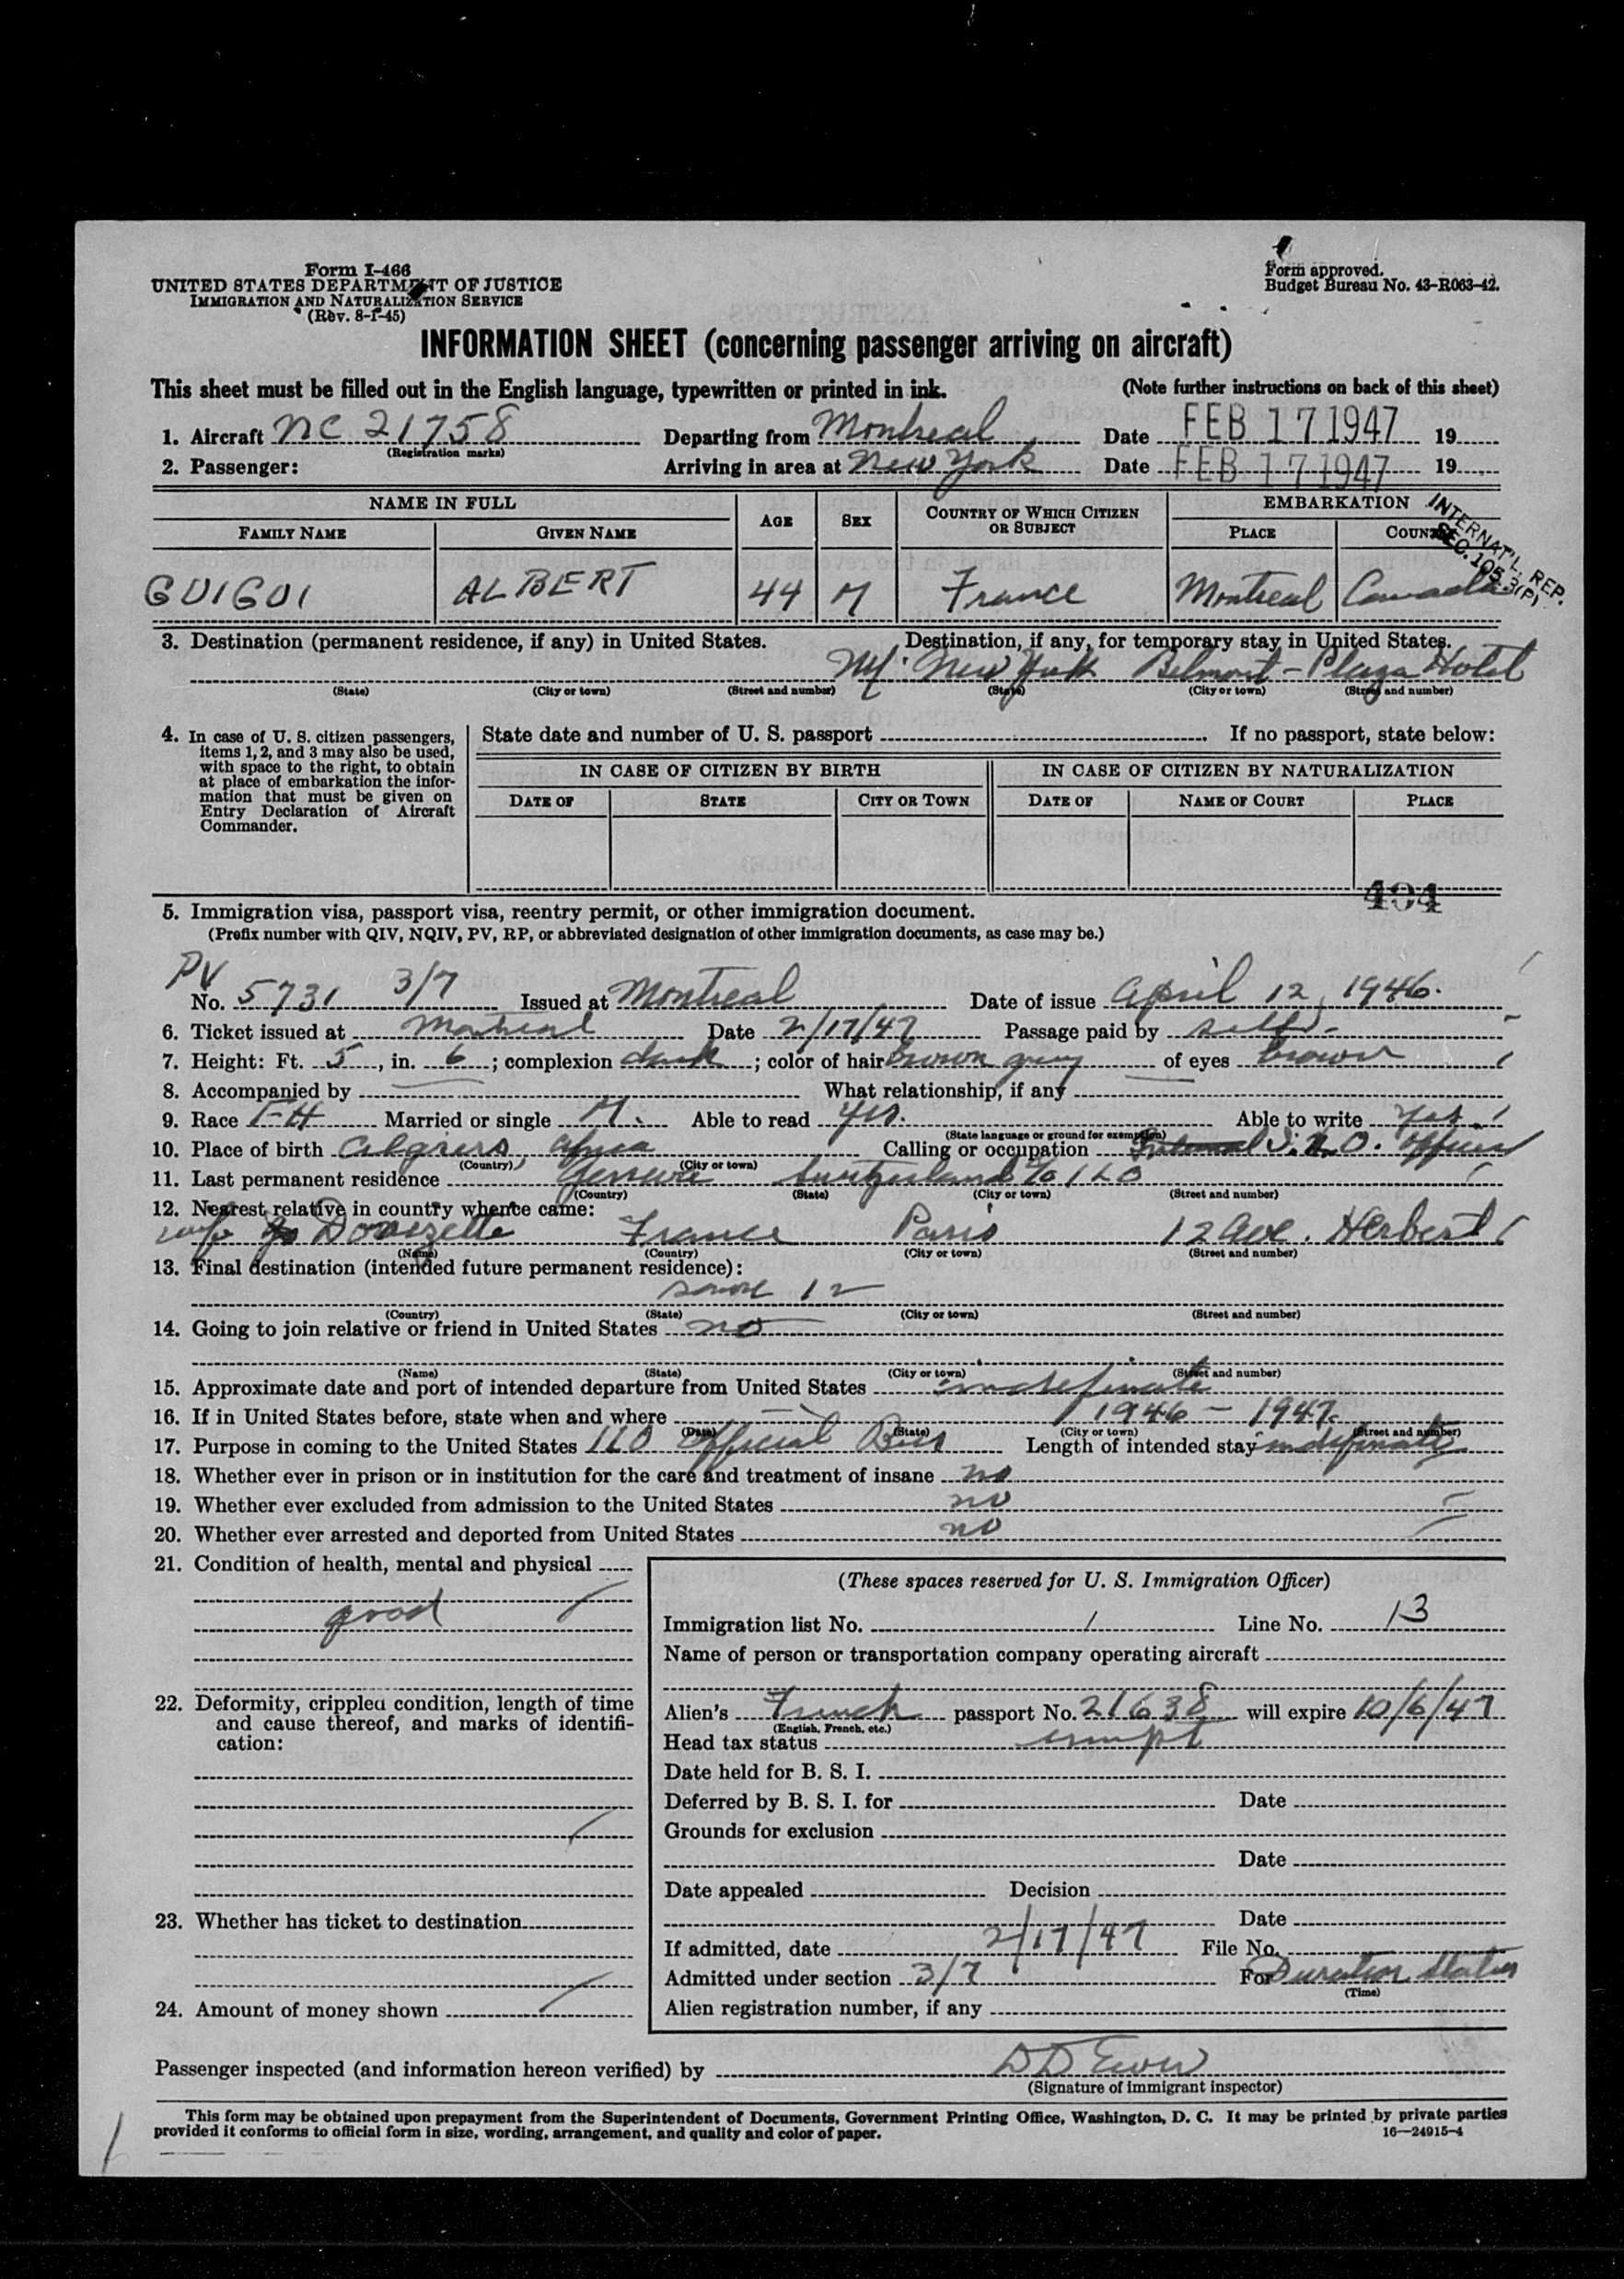 Form I-466
UNITED STATES DEPARTMENT OF JUSTICE
IMMIGRATION AND NATURALIZATION SERVICE
(Rev. 8-1-45)
Form approved.
Budget Bureau No. 43-R063-42.
INFORMATION SHEET (concerning passenger arriving on aircraft)
This sheet must be filled out in the English language, typewritten or printed in ink. (Note further instructions on back of this sheet)
1. Aircraft NC 21758 Departing from Montreal Date FEB 17 1947 19
(Registration marks)
2. Passenger: Arriving in area at New York Date FEB 17 1947 19
NAME IN FULL AGE SEX COUNTRY OF WHICH CITIZEN OR SUBJECT EMBARKATION
FAMILY NAME GIVEN NAME PLACE COUNT
INTERNAT'L. REP.
SEC. 105.3(P)
GUIGUI ALBERT 44 M France Montreal Canada
3. Destination (permanent residence, if any) in United States. Destination, if any, for temporary stay in United States.
New York Belmont-Plaza Hotel
(State) (City or town) (Street and number) (State) (City or town) (Street and number)
4. In case of U. S. citizen passengers, items 1, 2, and 3 may also be used, with space to the right, to obtain at place of embarkation the information that must be given on Entry Declaration of Aircraft Commander.
State date and number of U. S. passport If no passport, state below:
IN CASE OF CITIZEN BY BIRTH IN CASE OF CITIZEN BY NATURALIZATION
DATE OF STATE CITY OR TOWN DATE OF NAME OF COURT PLACE
494
5. Immigration visa, passport visa, reentry permit, or other immigration document.
(Prefix number with QIV, NQIV, PV, RP, or abbreviated designation of other immigration documents, as case may be.)
PV
No. 5731 3/7 Issued at Montreal Date of issue April 12, 1946.
6. Ticket issued at Montreal Date 2/17/47 Passage paid by self
7. Height: Ft. 5, in. 6; complexion dark; color of hair brown grey of eyes brown
8. Accompanied by What relationship, if any
9. Race FH Married or single M. Able to read yes. Able to write yes.
(State language or ground for exemption)
10. Place of birth Algiers, Africa Calling or occupation officer
(Country) (City or town)
11. Last permanent residence Geneva Switzerland c/o ILO
(Country) (State) (City or town) (Street and number)
12. Nearest relative in country whence came:
wife Donizette France Paris 12 Ave. Herbert
(Name) (Country) (City or town) (Street and number)
13. Final destination (intended future permanent residence):
same 12
(Country) (State) (City or town) (Street and number)
14. Going to join relative or friend in United States no
(Name) (State) (City or town) (Street and number)
15. Approximate date and port of intended departure from United States indefinite
16. If in United States before, state when and where 1946 - 1947.
(Date) (State) (City or town) (Street and number)
17. Purpose in coming to the United States ILO official Bus Length of intended stay indefinite
18. Whether ever in prison or in institution for the care and treatment of insane no
19. Whether ever excluded from admission to the United States no
20. Whether ever arrested and deported from United States no
21. Condition of health, mental and physical
good
22. Deformity, crippled condition, length of time and cause thereof, and marks of identification:
23. Whether has ticket to destination
24. Amount of money shown
(These spaces reserved for U. S. Immigration Officer)
Immigration list No. 1 Line No. 13
Name of person or transportation company operating aircraft
Alien's French passport No. 21638 will expire 10/6/47
(English, French, etc.)
Head tax status exempt
Date held for B. S. I.
Deferred by B. S. I. for Date
Grounds for exclusion
Date
Date appealed Decision
Date
If admitted, date 2/17/47 File No.
Admitted under section 3/7 For Duration Status
(Time)
Alien registration number, if any
Passenger inspected (and information hereon verified) by
(Signature of immigrant inspector)
This form may be obtained upon prepayment from the Superintendent of Documents, Government Printing Office, Washington, D. C. It may be printed by private parties
provided it conforms to official form in size, wording, arrangement, and quality and color of paper.
16—24915-4